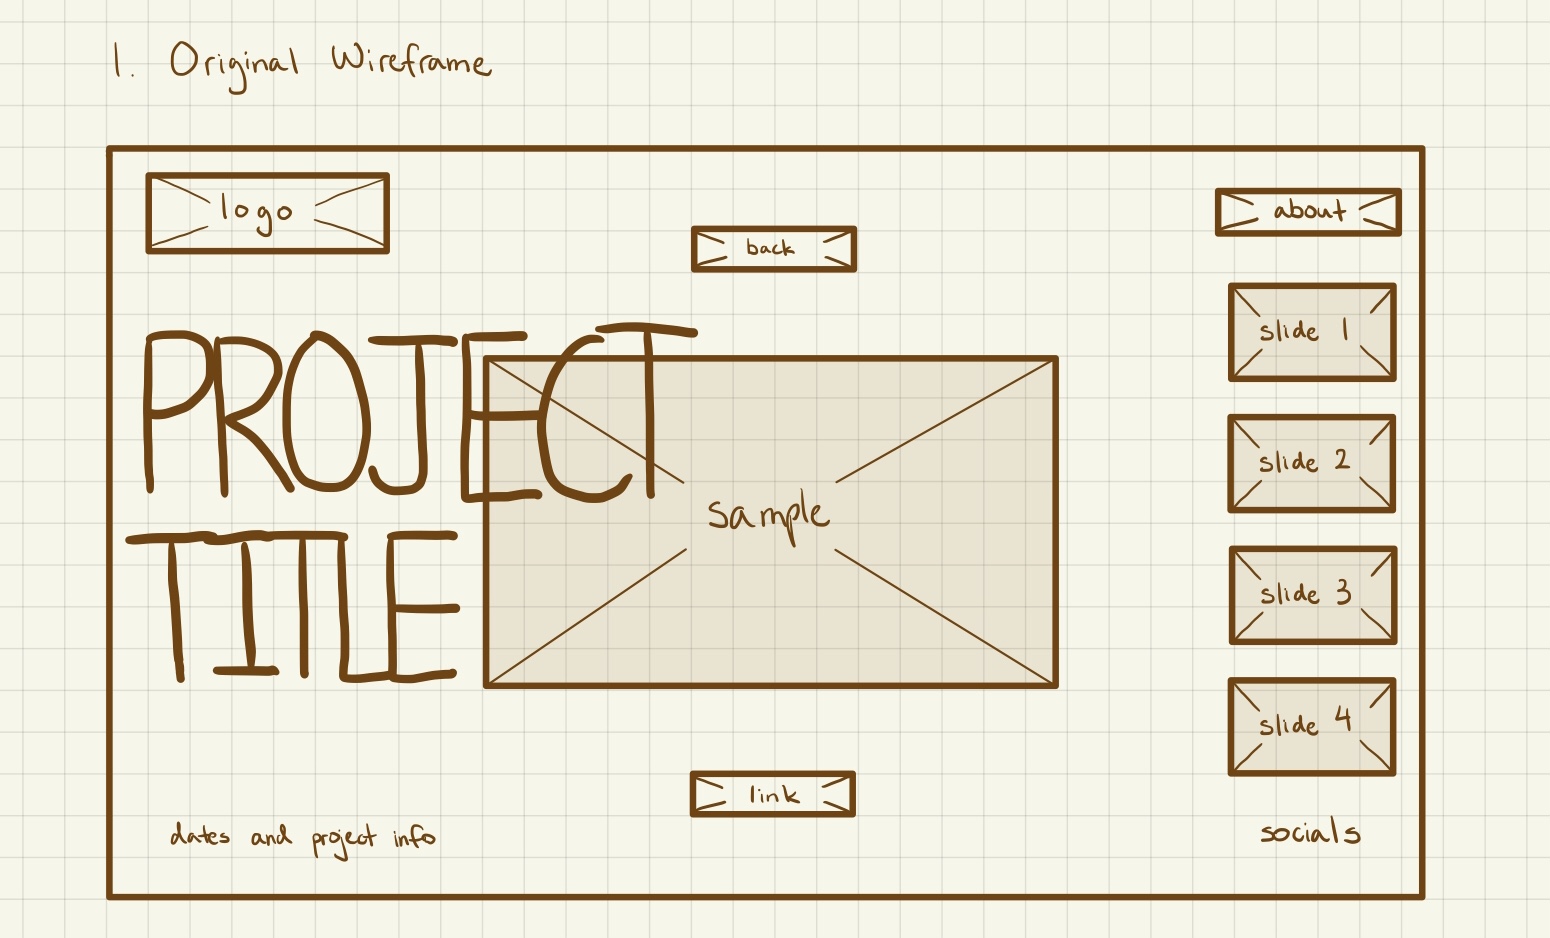 1. Original Wireframe
logo
about
back
slide 1
PROJECT
TITLE
sample
slide 2
slide 3
slide 4
link
dates and project info
socials